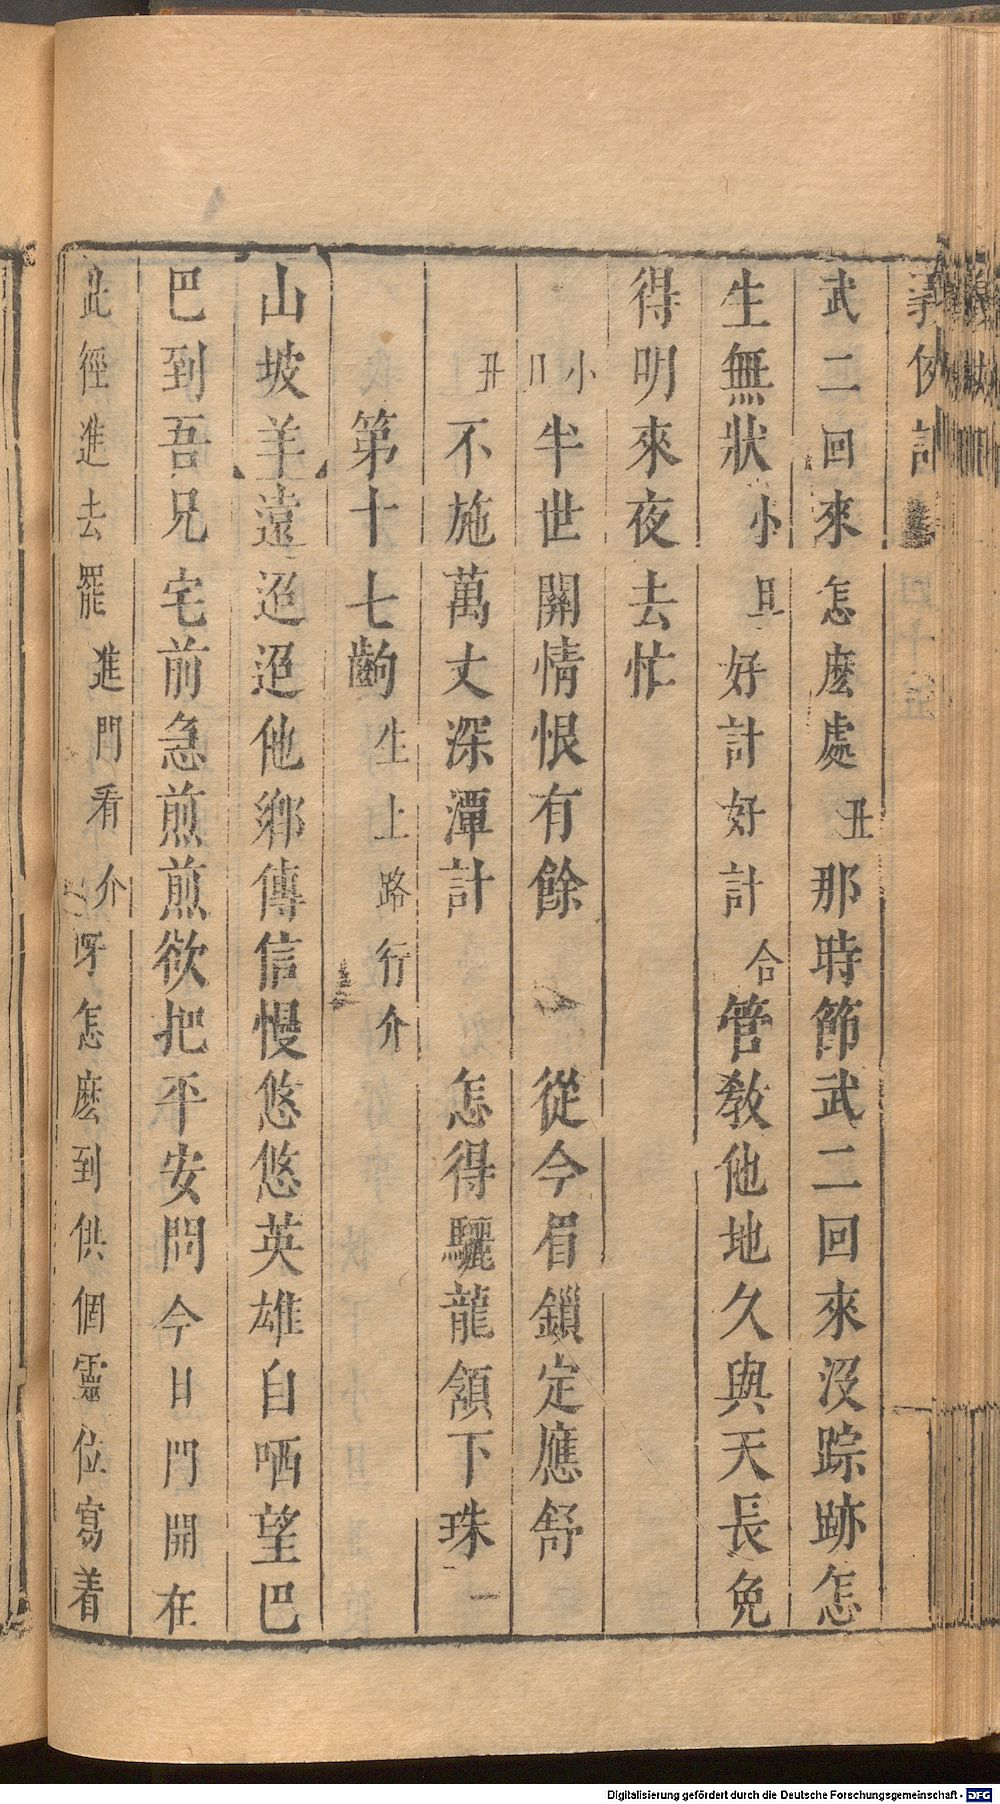 武二回來怎麽處丑那時節武二回來没踪跡怎
生無狀小旦好計好計合管教他地久與天長免
得明來夜去忙
小旦半世關情恨有餘　從今眉鎖定應舒
丑不施萬丈深潭計　怎得驪龍頷下珠
第十七齣生上路行介
山坡羊遠迢迢他鄉傳信慢悠悠英雄自哂望巴
巴到吾兄宅前急煎煎欲把平安問今日門開在
此徑進去罷進門看介呀怎麽到供個靈位寫着
Digitalisierung gefördert durch die Deutsche Forschungsgemeinschaft - DFG